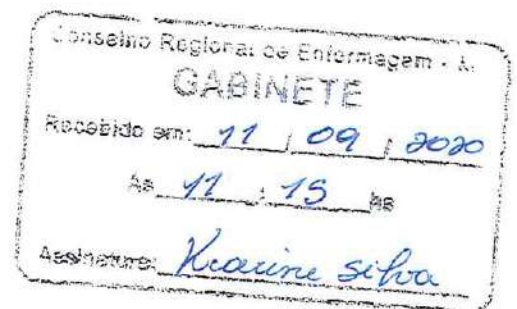 Conselho Regional de Enfermagem -
GABINETE
Recebido em: 11 / 09 / 2020
Às 11 : 15 hs
Assinatura: silva